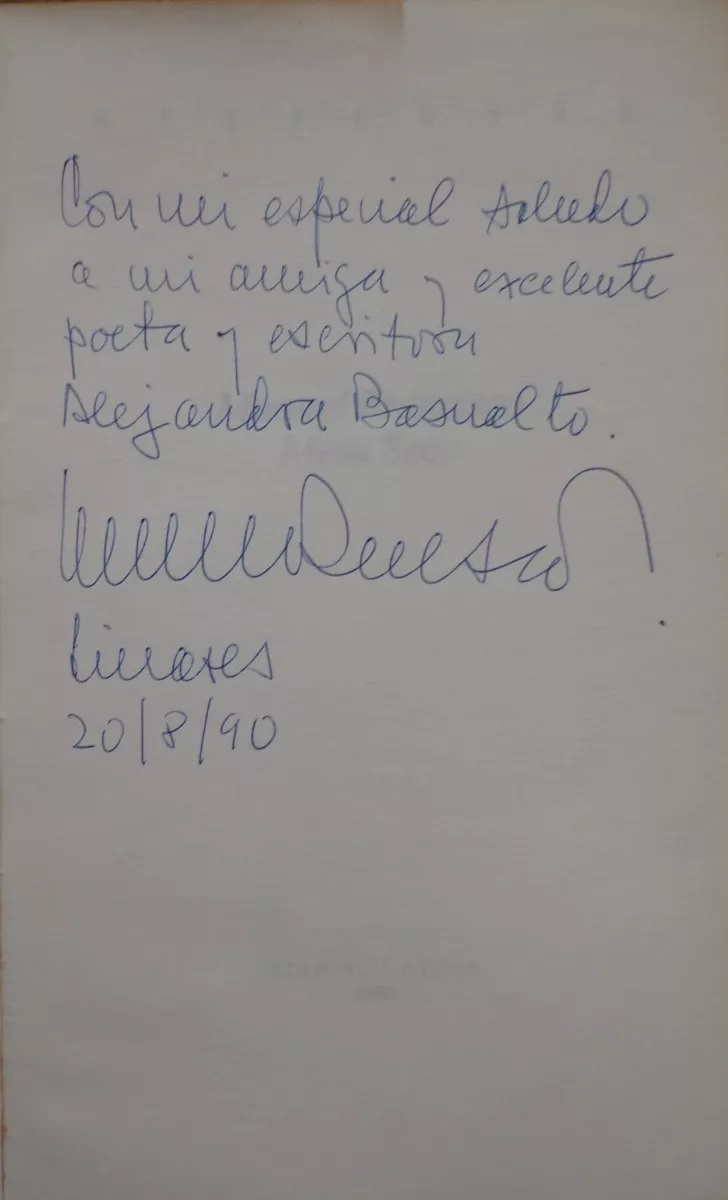 Con mi especial saludo
a mi amiga y excelente
poeta y escritora
Alejandra Basualto.
Linares
20/8/90